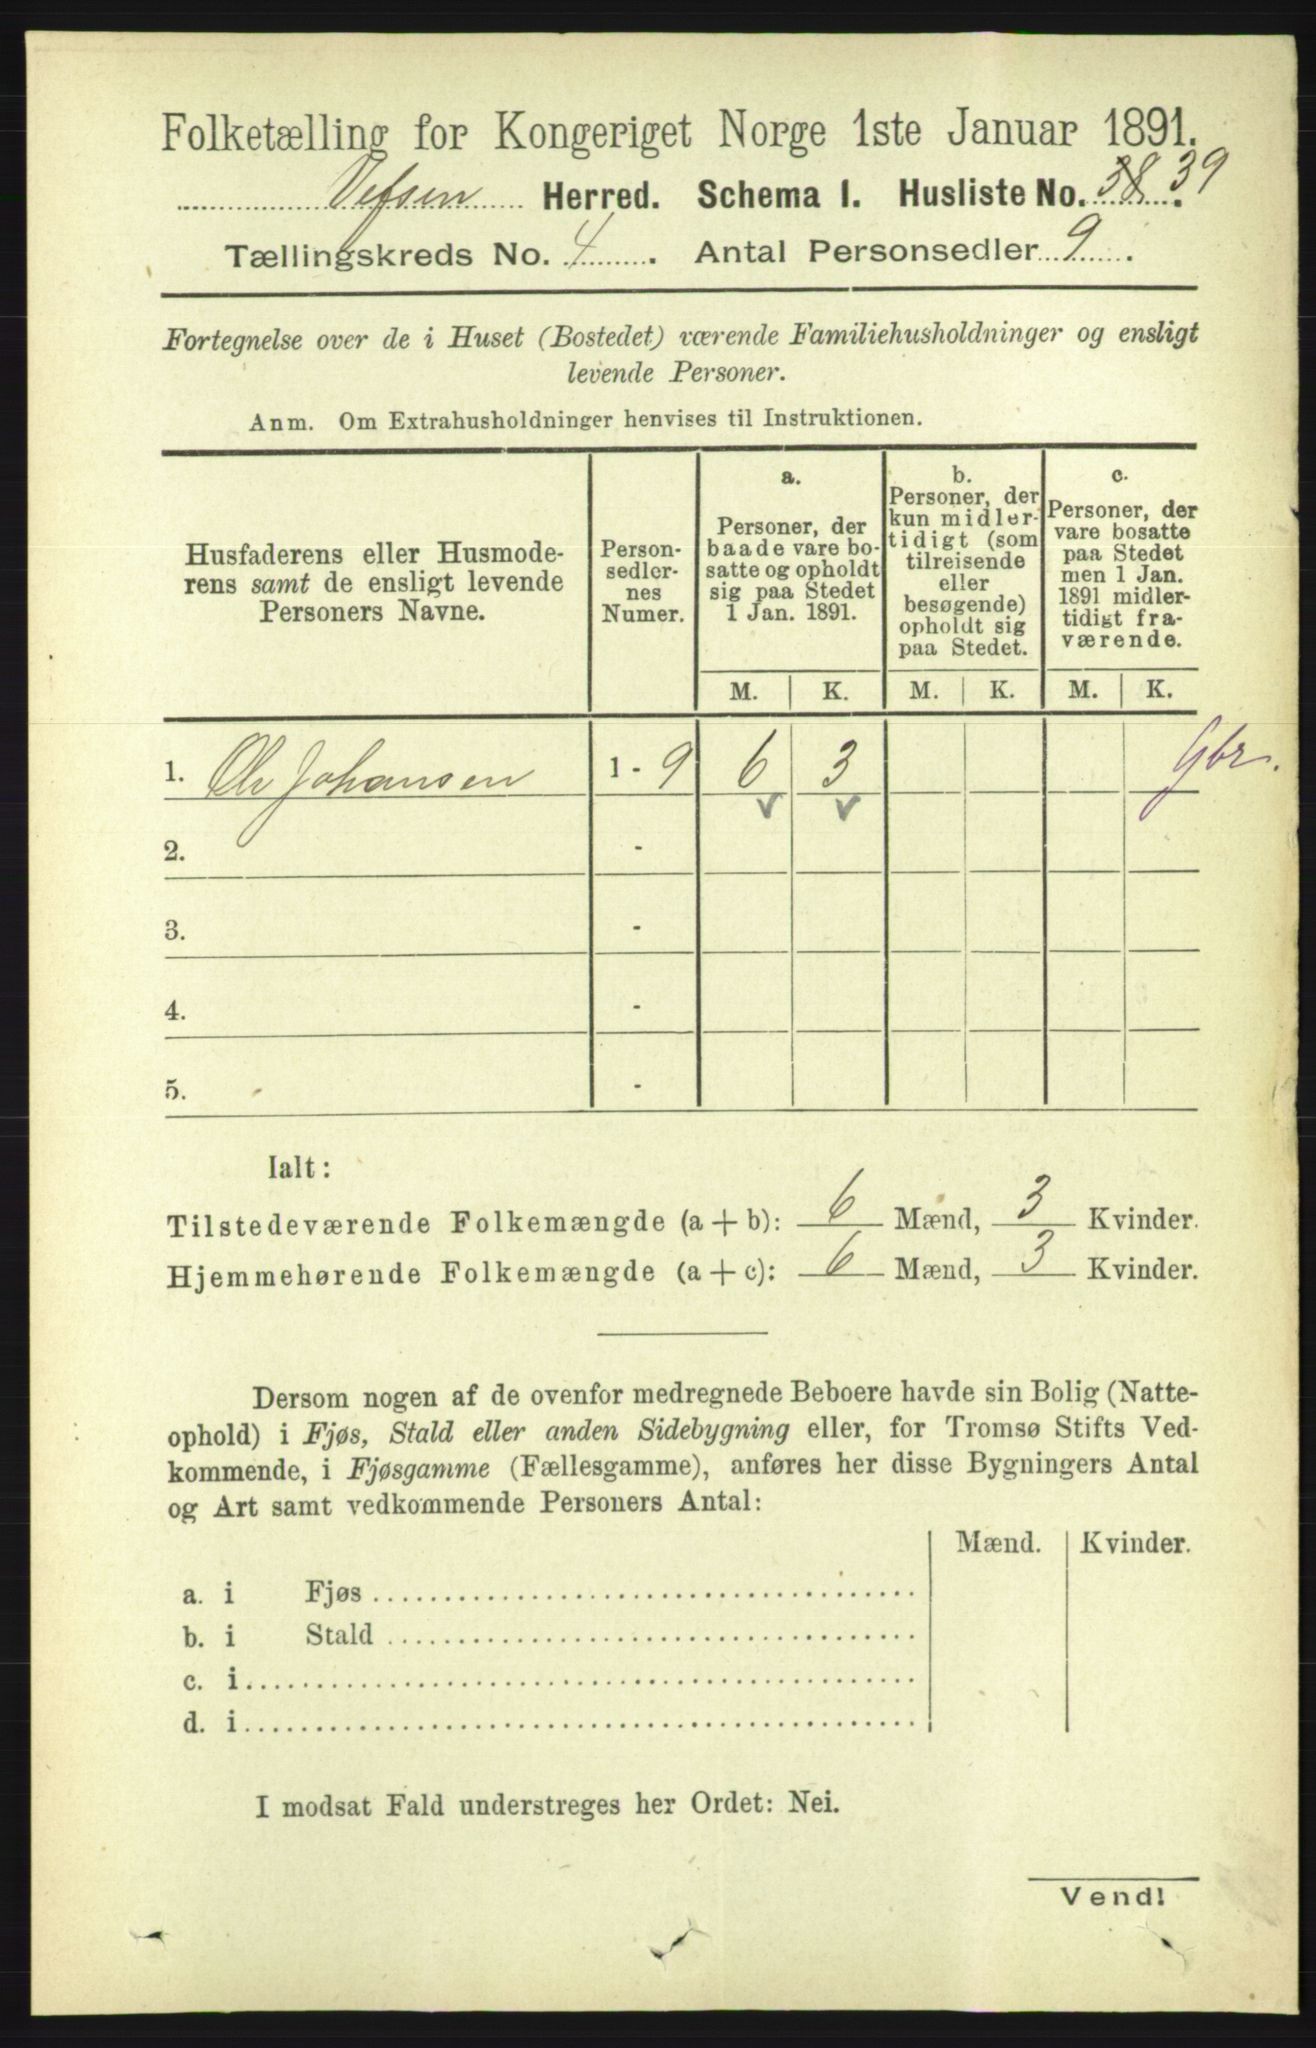 Folketælling for Kongeriget Norge 1ste Januar 1891.
Vefsen Herred. Schema I. Husliste No. 38 39
Tællingskreds No. 4. Antal Personsedler 9.
Fortegnelse over de i Huset (Bostedet) værende Familiehusholdninger og ensligt
levende Personer.
Anm. Om Extrahusholdninger henvises til Instruktionen.
Husfaderens eller Husmode-
rens samt de ensligt levende
Personers Navne.
Person-
sedler-
nes
Numer.
a.
Personer, der
baade vare bo-
satte og opholdt
sig paa Stedet
1 Jan. 1891.
b.
Personer, der
kun midler-
tidigt (som
tilreisende
eller
besøgende)
opholdt sig
paa Stedet.
c.
Personer, der
vare bosatte
paa Stedet
men 1 Jan.
1891 midler-
tidigt fra-
værende.
M. K. M. K. M. K.
1. Ole Johansen 1 - 9 6 3 Gbr.
2. -
3. -
4. -
5. -
Ialt:
Tilstedeværende Folkemængde (a + b): 6 Mænd, 3 Kvinder.
Hjemmehørende Folkemængde (a + c): 6 Mænd, 3 Kvinder.
Dersom nogen af de ovenfor medregnede Beboere havde sin Bolig (Natte-
ophold) i Fjøs, Stald eller anden Sidebygning eller, for Tromsø Stifts Ved-
kommende, i Fjøsgamme (Fællesgamme), anføres her disse Bygningers Antal
og Art samt vedkommende Personers Antal:
Mænd. Kvinder.
a. i Fjøs
b. i Stald
c. i
d. i
I modsat Fald understreges her Ordet: Nei.
Vend!